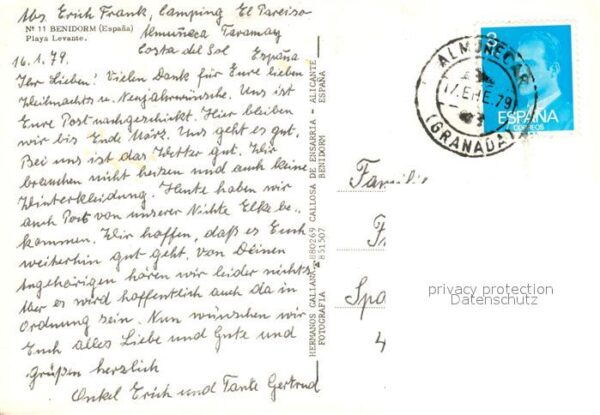 Abs. Erich Frank, Camping El Pareiso
Nº 11 BENIDORM (España)
Playa Levante.
Almuñeca Taramay
Costa del Sol España
16.1.79.
Ihr Lieben! Vielen Dank für Eure lieben
Weihnachts u. Neujahrswünsche. Uns ist
Eure Post nachgeschickt. Hier bleiben
wir bis Ende März. Uns geht es gut.
Bei uns ist das Wetter gut. Wir
brauchen nicht heizen und auch keine
Winterkleidung. Heute haben wir
auch Post von unserer Nichte Elke be-
kommen. Wir hoffen, daß es Euch
weiterhin gut geht. Von Deinen
Angehörigen hören wir leider nichts
Aber es wird hoffentlich auch da in
Ordnung sein. Nun wünschen wir
Euch alles Liebe und Gute und
grüßen herzlich
Onkel Erich und Tante Gertrud
HERMANOS GALIANA 880269 CALLOSA DE ENSARRIA - ALICANTE
FOTOGRAFIA 851507 BENIDORM ESPAÑA
ALMUÑECAR
17.ENE.79
(GRANADA)
ESPAÑA
CORREOS
Famili
F
Spa
4
privacy protection
Datenschutz